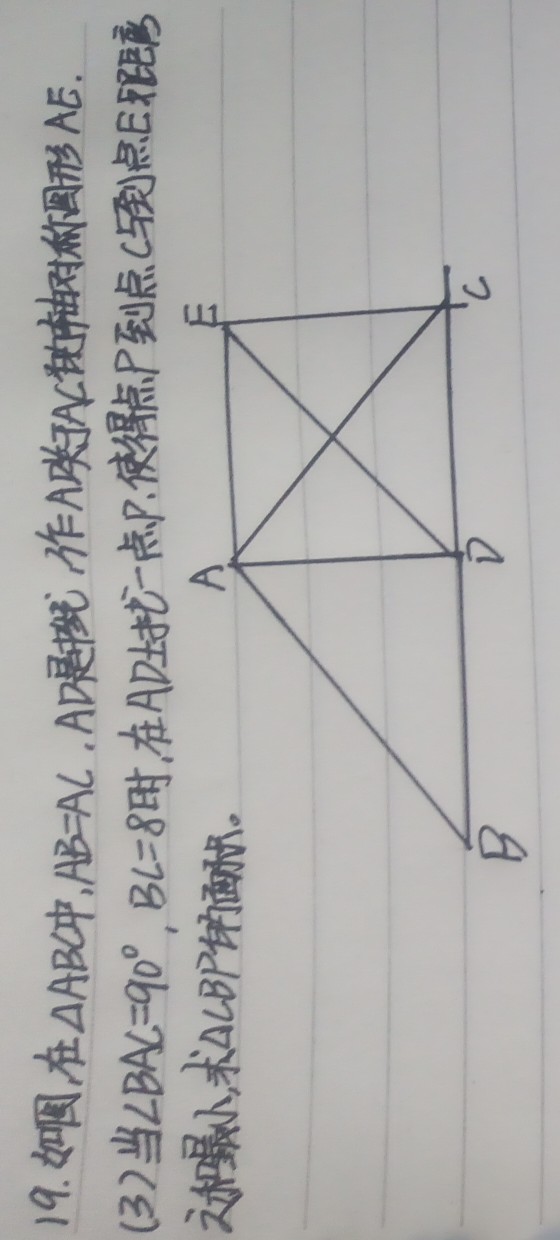 19.如图,在△ABC中,AB=AC,AD是中线,作AD关于AC的轴对称图形AE.
(3)当∠BAC=90°,BC=8时,在AD上找一点P.使得点P到点C与到点E的距离
之和最小,求△CBP的面积。
E
A
C
D
B